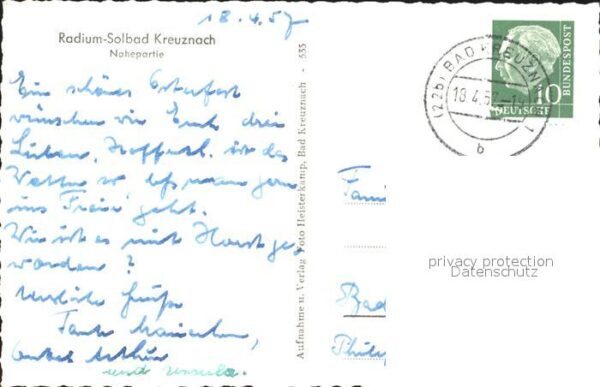 18.4.57
Radium-Solbad Kreuznach
Nahepartie
Ein schönes Osterfest
wünschen wir Euch drei
Lieben, Hoffentl. ist das
Wetter so, daß man gern
ins Freie geht.
Wie ist es mit Horst ge
worden?
Herzliche Grüße
Tante
Onkel Arthur
und Ursula.
Aufnahme u. Verlag Foto Heisterkamp, Bad Kreuznach - 535
(22b) BAD KREUZN
18.4.57
b
10
DEUTSCHE
BUNDESPOST
Fami
Bad
Philip
privacy protection
Datenschutz